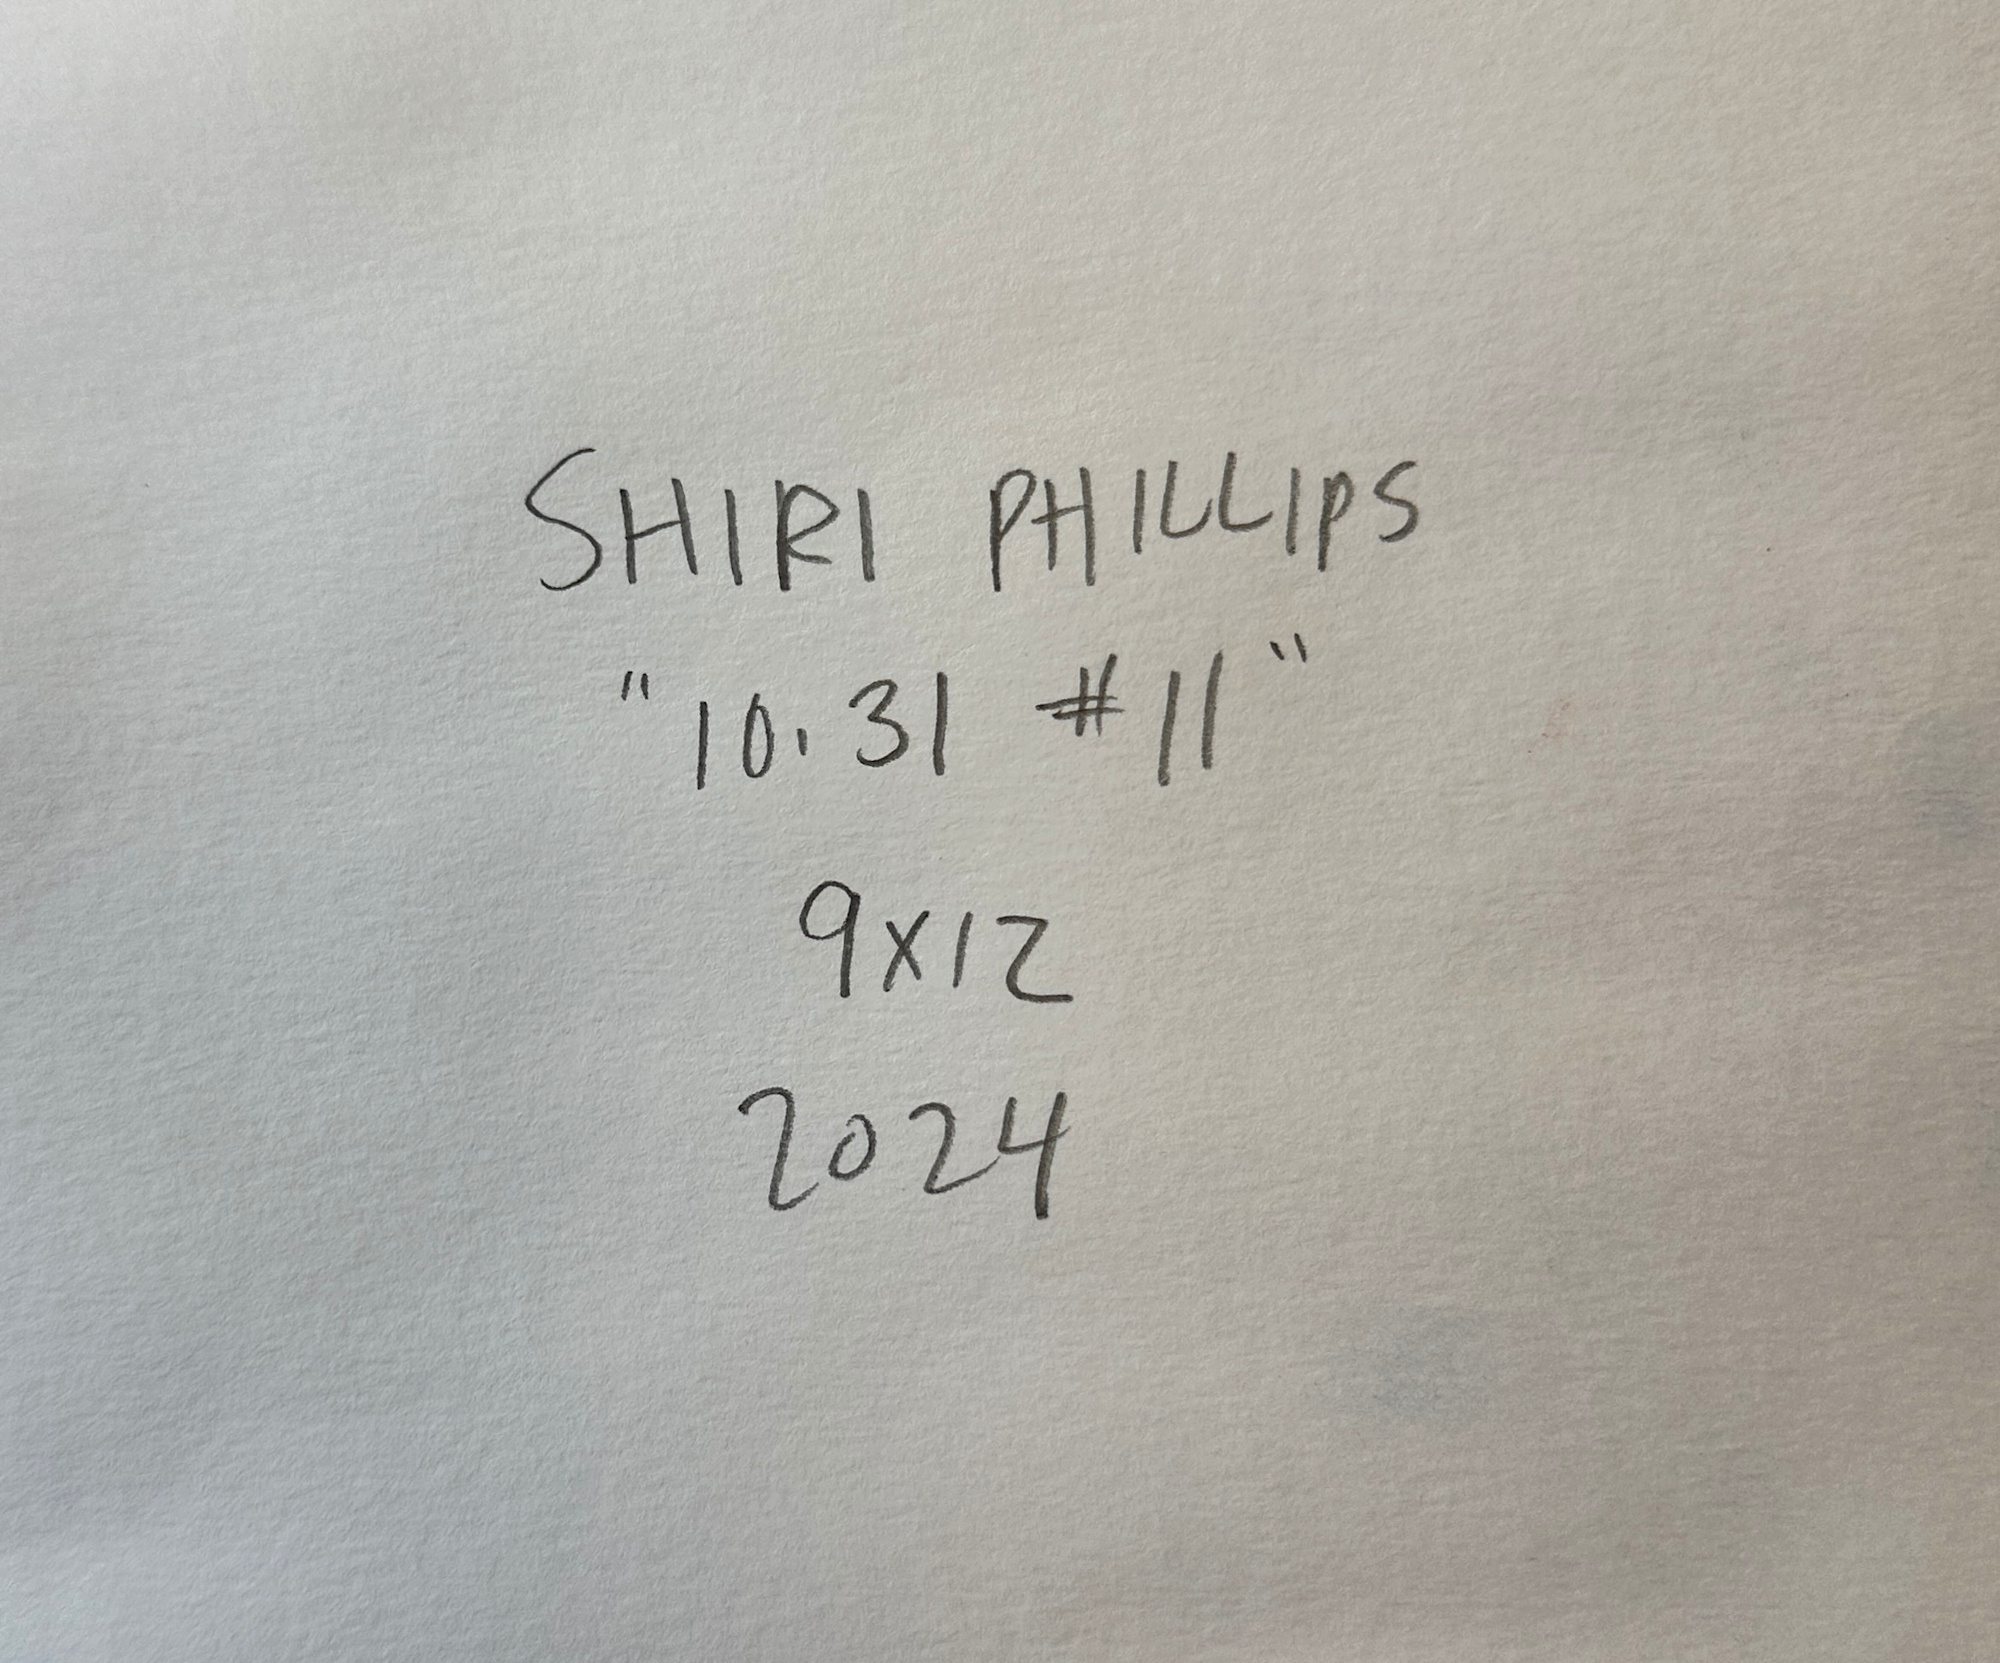 SHIRI PHILLIPS
"10.31 #11"
9x12
2024